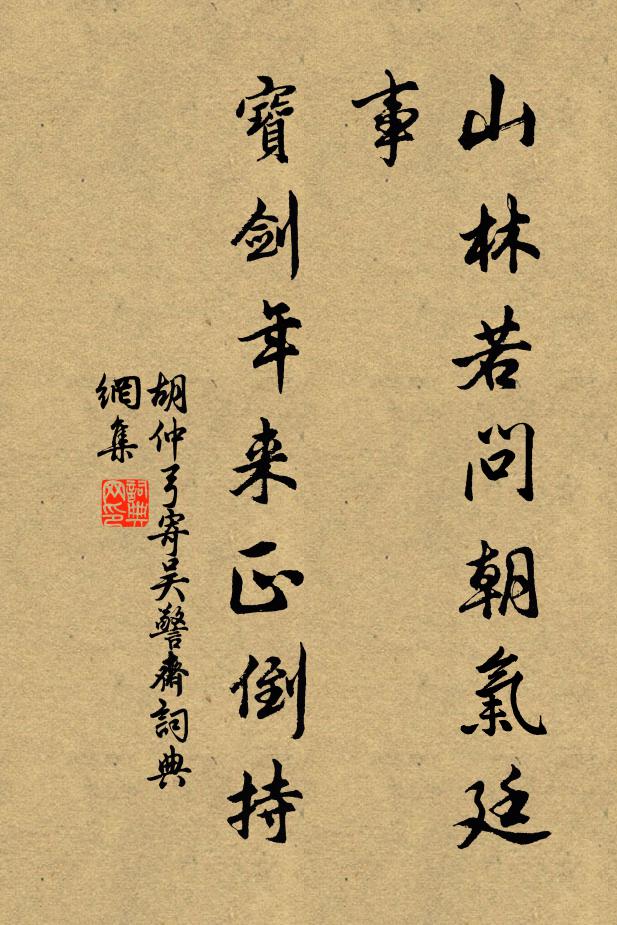 山林若問朝氣廷
事
寶劍年来正倒持
胡仲弓寄吴警齋詞典
網集
詞典
网印